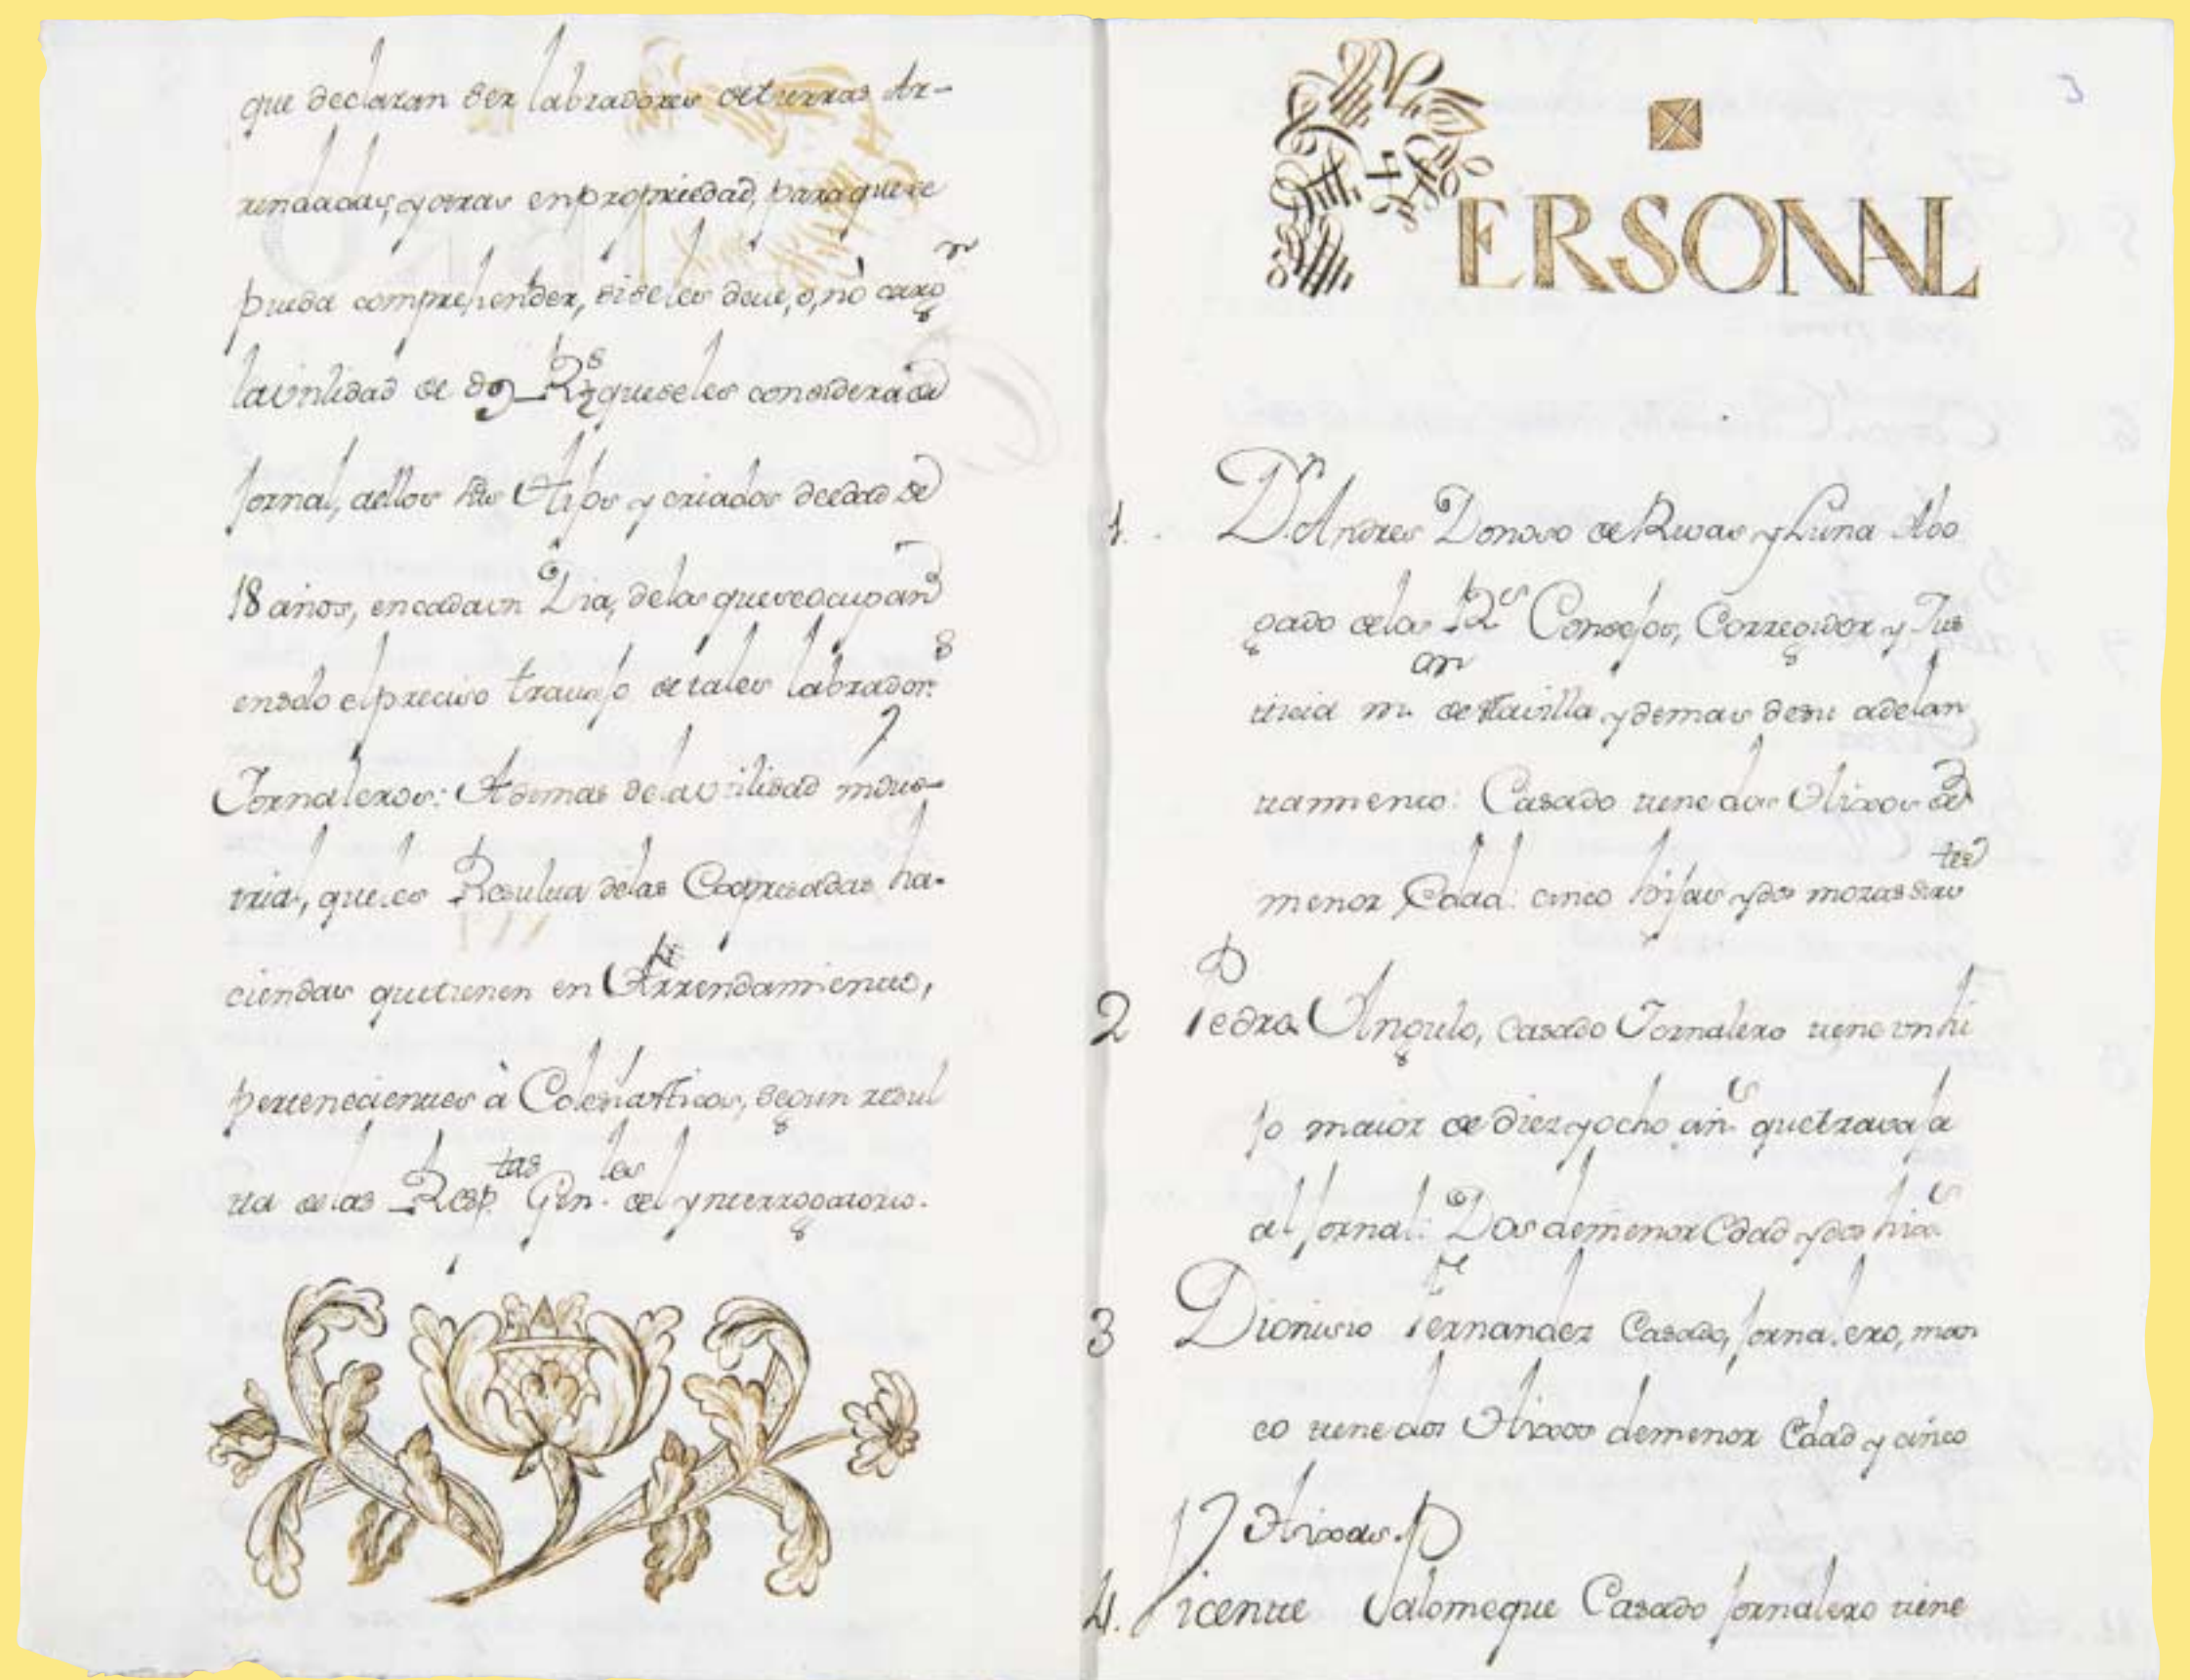 que declaran ser labradores de tierras Ar-
rendadas, y otras en propriedad, para que se
pueda comprehender, si se les deue, o, nò carg.r
la vtilidad de 89 R.s que se les considera de
Jornal, a ellos sus Hijos y criados de edad de
18 años, en cada vn Dia, de los que se ocupan
en solo el preciso trauajo de tales labrador.s
Jornaleros: Ademas de la vtilidad indus-
trial, que les Resulta de las Expresadas ha-
ciendas que tienen en Arrendamiento,
pertenecientes à Eclesiasticos, segun resul
ta de las Resp.tas Gen.les del ynterrogatorio.
PERSONAL
1. D.n Andres Donoso de Riuas y Luna Abo
gado de los R.s Consejos, Corregidor y Jus
ticia m.or de sta villa y demas de su adelan
tamiento: Casado tiene dos Hixos de
menor Edad: cinco hijas y dos mozas sirutes
2 Pedro Angulo, casado Jornalero tiene vn hi
jo maior de diez y ocho añ.s que trauaja
al jornal: Dos de menor Edad y dos hias
3 Dionisio Fernandez Casado, jornalero, man
co tiene dos Hixos de menor Edad y cinco
Hixas.
4. Vicente Jalomeque Casado jornalero tiene